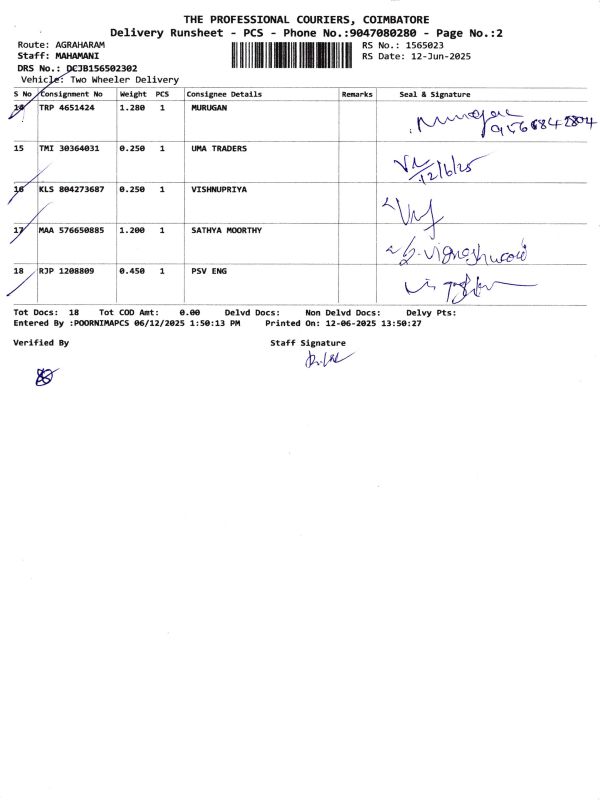 THE PROFESSIONAL COURIERS, COIMBATORE
Delivery Runsheet - PCS - Phone No.:9047080280 - Page No.:2
Route: AGRAHARAM RS No.: 1565023
Staff: MAHAMANI RS Date: 12-Jun-2025
DRS No.: DCJB156502302
Vehicle: Two Wheeler Delivery
S No Consignment No Weight PCS Consignee Details Remarks Seal & Signature
14 TRP 4651424 1.280 1 MURUGAN Murugan
9566842804
15 TMI 30364031 0.250 1 UMA TRADERS
12/6/25
16 KLS 804273687 0.250 1 VISHNUPRIYA
17 MAA 576650885 1.200 1 SATHYA MOORTHY
18 RJP 1208809 0.450 1 PSV ENG
Tot Docs: 18 Tot COD Amt: 0.00 Delvd Docs: Non Delvd Docs: Delvy Pts:
Entered By :POORNIMAPCS 06/12/2025 1:50:13 PM Printed On: 12-06-2025 13:50:27
Verified By Staff Signature